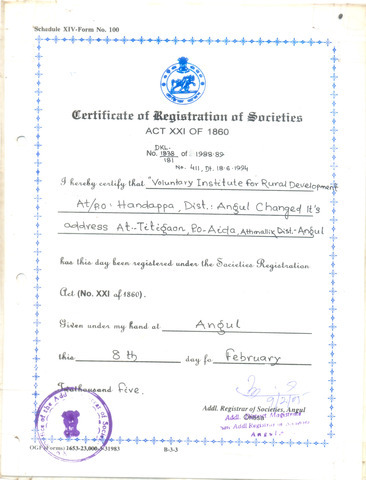 Schedule XIV-Form No. 100
Certificate of Registration of Societies
ACT XXI OF 1860
DKL.
No. 1838 of 1988-89
181
No. 411, Dt. 18-6-1994
I hereby certify that "Voluntary Institute for Rural Development
At/Po: Handappa, Dist: Angul Changed It's
address At-Tetigaon, Po-Aida, Athmallik, Dist-Angul
has this day been registered under the Societies Registration
Act (No. XXI of 1860).
Given under my hand at Angul
this 8th day fo February
Twothousand Five.
9/2/05
Addl. Registrar of Societies, Angul
Addl. District Magistrate
Addl Registrar of
Angul
OGP (Forms) 1653-23,000-
B-3-3